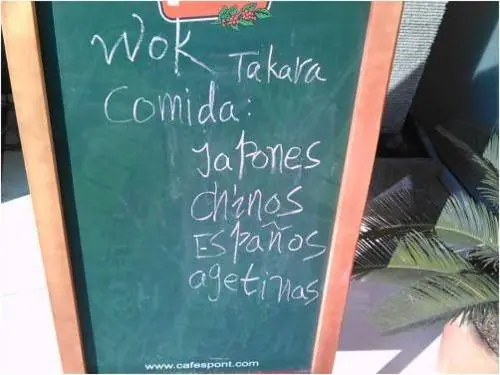 Wok Takara
Comida:
Japones
chinos
Españos
agetinas
www.cafespont.com